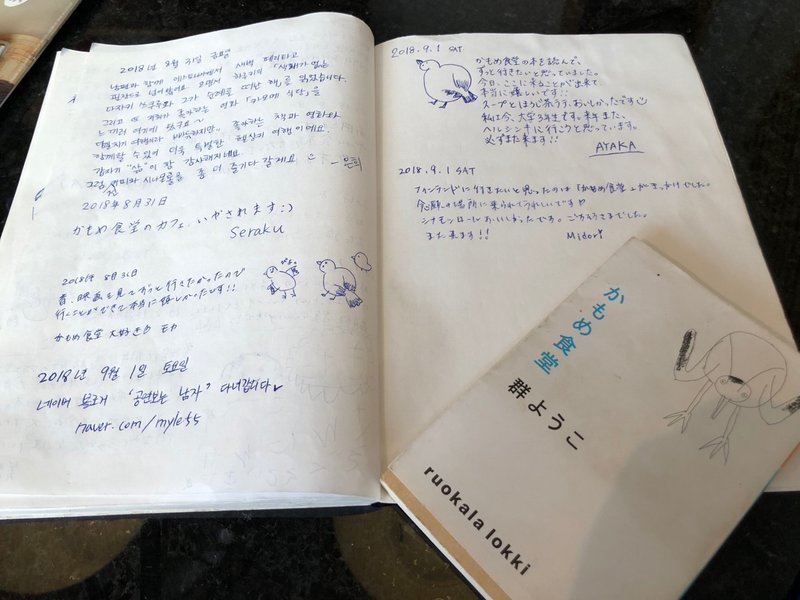 2018년 8월 31일 금요일
남편과 함께 에스토니아에서 새벽 페리타고
핀란드로 넘어왔어요. 오면서 하루키의 「색채가 없는
다자키 쓰쿠루와 그가 순례를 떠난 해」를 읽었습니다.
그리고 또 저희가 좋아하는 영화 「카모메 식당」을
느끼러 여기에 왔구요~
좋아하는 책과 영화와
함께할 수 있어 더욱 특별한 헬싱키 여행이에요.
감사해지네요.
그럼 전 커피와 시나몬롤을 좀 더 즐기다 갈게요 - 은희
2018年8月31日
かもめ食堂のカフェ、いやされます:)
Seraku
2018年 8月31日
昔、映画を見てずっと行きたかったので
行くことができて本当に嬉しかったです!!
かもめ食堂 大好き
2018년 9월 1일 토요일
네이버 블로거 '공연보는 남자' 다녀갑니다
naver.com/myle55
2018.9.1 SAT
かもめ食堂の本を読んで、
ずっと行きたいと思っていました。
今日、ここに来ることが出来て、
本当に嬉しいです!!
スープとほうじ茶ラテ、おいしかったです
私は今、大学3年生です。来年また、
ヘルシンキに行こうと思っています。
必ずまた来ます!!
AYAKA
2018.9.1 SAT
フィンランドに行きたいと思ったのは「かもめ食堂」がきっかけでした。
念願の場所に来られてうれしいです
シナモンロールおいしかったです。ごちそうさまでした。
また来ます!!
Midori
かもめ食堂
群ようこ
ruokala lokki